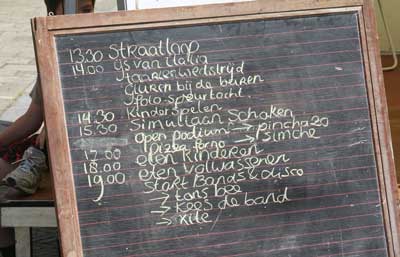 13.30 Straatloop
14.00 ijs van Dalia
taartenwedstrijd
Gluren bij de buren
foto-speurtocht
14.30 Kinderspelen
15.30 Simultaan Schaken
open podium → Pinchazo
pizza forno → Simche
17.00 eten kinderen
18.00 eten volwassenen
19.00 Start Bands & disco
→ Kees de band
→ xile